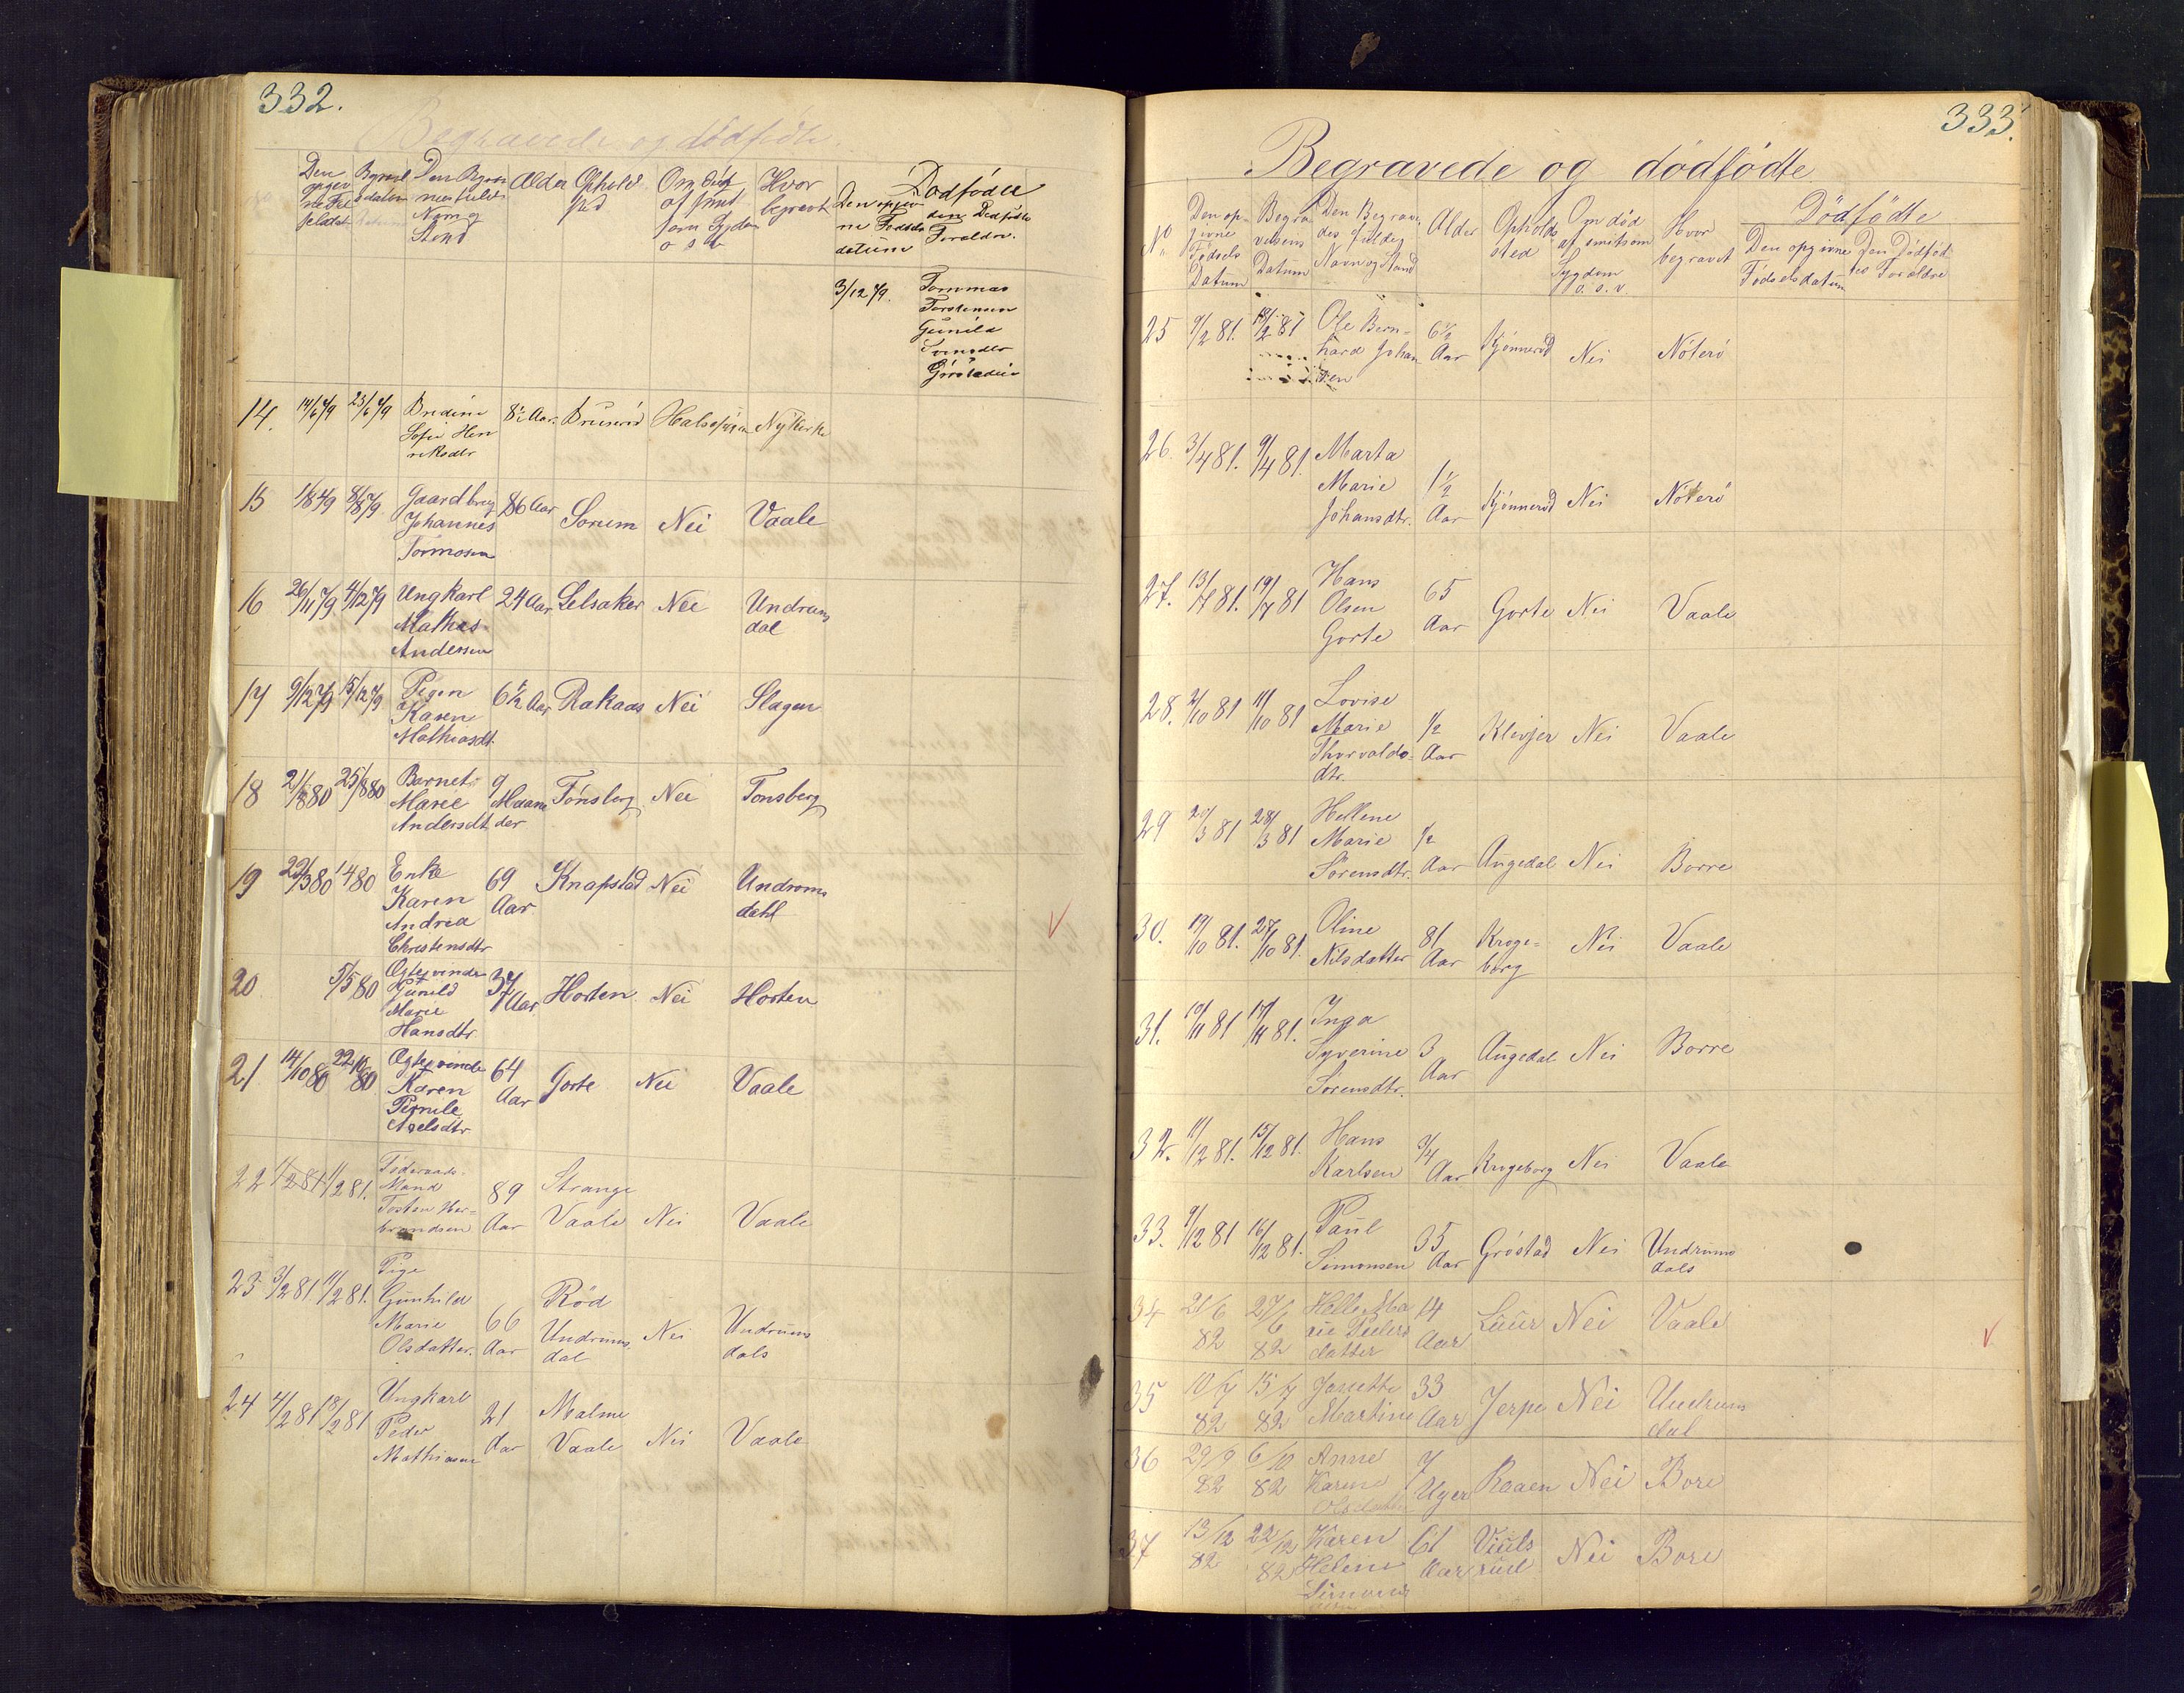 332.
Begravede og dödfödte.
Den opgivne Födselsdatum
Begravelsesdatum
Den Begravnes fulde Navn og Stand
Alder
Opholdsted
Om död af smitsom Sygdom o s v
Hvor begravet
Dödfödte
Den opgivne Födselsdatum
den Dödfödte Foreldre.
3/12 79. Tommas
Torstensen
Gunild
Gröstadie
14. 14/6 79 23/6 79 Bredine 8½ Aar. Bruseröd Halssyge Nykirke
Sofie Hen
riksdtr
15 1/8 79 8/8 79 Gaardbrug 86 Aar Sorum Nei Vaale
Johannes
Tormosen
16 26/11 79 4/12 79 Ungkarl 24 Aar Selsaker Nei Undrums
Mathias dal
Andersen
17 9/12 79 15/12 79 Pigen 6½ Aar Rakaas Nei Slagen
Karen
Mathiasdt.
18 21/8 80 25/8 80 Barnet 9 Tönsberg Nei Tonsberg
Marie Maane
Andersdt der
19 22/3 80 1/4 80 Enke 69 Knapstad Nei Undroms
Karen Aar. dahl
Andrea
Christensdtr
20 5/5 80 Ogtequinde 37 Horten Nei Horten
Gunild Aar
Marie
Hansdtr
21 14/10 80 22/10 80 Ogtequinde 64 Gorte Nei Vaale
Karen Aar
Pernile
Axelsdtr
22 4/2 81 11/2 81. Föderaads- 89 Strange
Mand Aar Vaale Nei Vaale
Tosten Her=
brandsen
23 3/2 81 11/2 81. Pige Röd
Gunhild 66 Undrums Nei Undrums
Marie Aar dal dals
Olsdatter.
24 4/2 81 18/2 81 Ungkarl 21 Malme
Peder Aar Vaale Nei Vaale
Mathiasen
333.
Begravede og dödfödte
No
Den opgivne Födsels Datum
Begravelsens Datum
Den Begravedes fulde Navn og Stand
Alder
Opholdssted
Om död af smitsom Sygdom o. s. v.
Hvor begravet
Dödfödte
Den opgivne Födselsdatum
Den Dödfödtes Foreldre
25 9/2 81. 18/2 81 Ole Bern= 6½ Kjönneröd Nei Nöterö
hard Johan Aar
sen
26. 3/4 81. 9/4 81. Marta
Marie 1½ Kjönneröd Nei Nöterö
Johansdtr. Aar
27. 13/7 81. 19/7 81 Hans 65 Gorte Nei Vaale
Olsen Aar
Gorte
28. 2/10 81 11/10 81 Lovise
Marie ½ Klevjer Nei Vaale
Thorvalds= Aar
dtr.
29 20/3 81 28/3 81 Hellene
Marie ½ Augedal Nei Borre
Sörensdtr. Aar
30. 19/10 81. 27/10 81. Oline 81 Kroge= Nei Vaale
Nilsdatter Aar borg
31. 10/11 81 17/11 81. Inga
Syverine 3 Augedal Nei Borre
Sörensdtr. Aar
32. 11/12 81. 15/12 81. Hans 3/4 Krogeborg Nei Vaale
Karlsen Aar
33. 9/12 81 16/12 81. Paul 35 Gröstad Nei Undrums
Simonsen Aar dals
34 21/6 82 27/6 82 Helle Ma 14 Luur Nei Vaale
rie Peders Aar
datter
35 10/7 82 15/7 82 Janette 33 Jerpe Nei Undrums
Martine Aar dal
36 29/9 82 6/10 82 Anne 7 Raaen Nei Bore
Karine Uger
Olsdatter
37 13/12 82 22/12 82 Karen 61 Viuls Nei Bore
Helene Aar rud
Simons